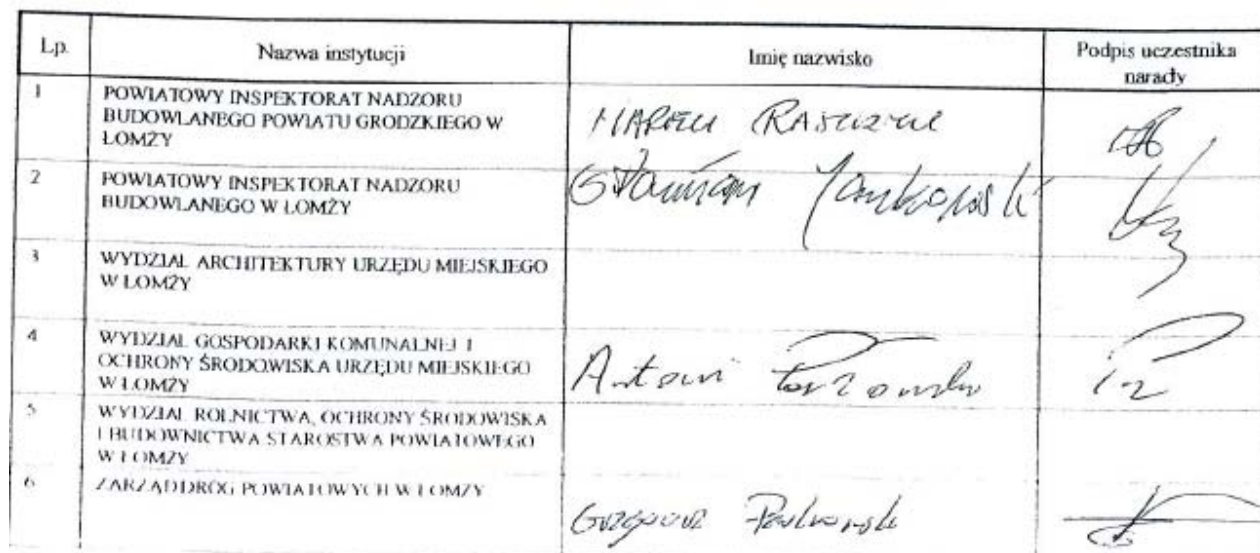 Lp. Nazwa instytucji Imię nazwisko Podpis uczestnika
narady
1 POWIATOWY INSPEKTORAT NADZORU
BUDOWLANEGO POWIATU GRODZKIEGO W
ŁOMŻY
2 POWIATOWY INSPEKTORAT NADZORU
BUDOWLANEGO W ŁOMŻY
Jankowski
3 WYDZIAŁ ARCHITEKTURY URZĘDU MIEJSKIEGO
W ŁOMŻY
4 WYDZIAŁ GOSPODARKI KOMUNALNEJ I
OCHRONY ŚRODOWISKA URZĘDU MIEJSKIEGO
W ŁOMŻY
Antoni
5 WYDZIAŁ ROLNICTWA, OCHRONY ŚRODOWISKA
I BUDOWNICTWA STAROSTWA POWIATOWEGO
W ŁOMŻY
6 ZARZĄD DRÓG POWIATOWYCH W ŁOMŻY
Grzegorz